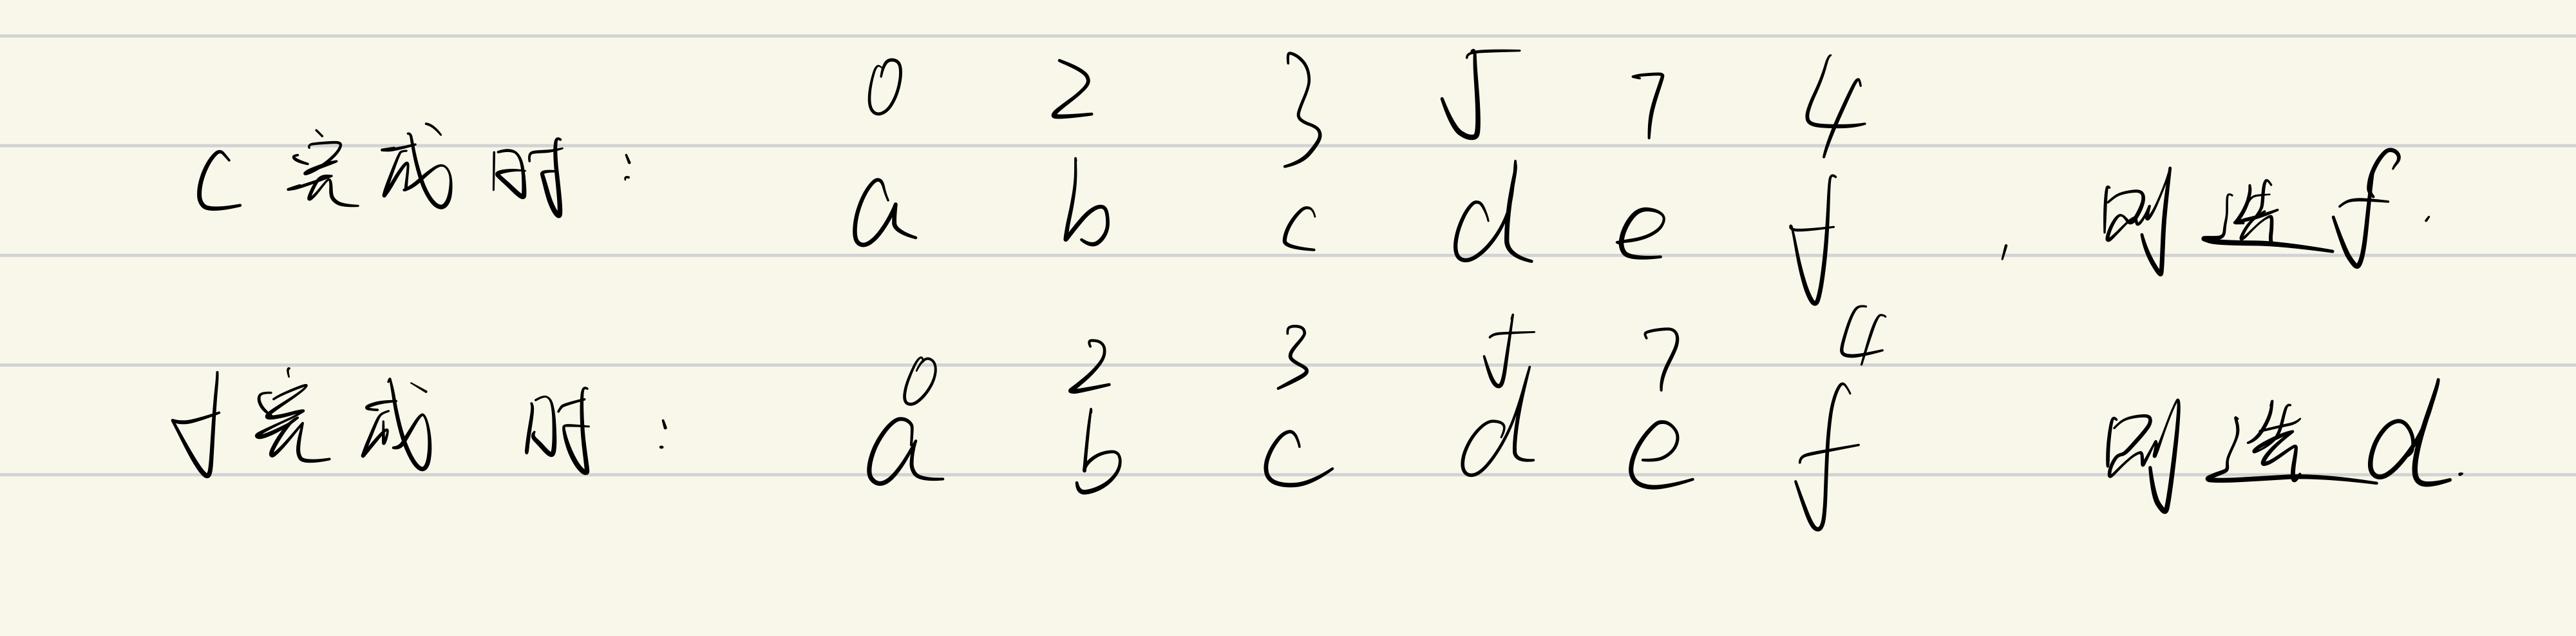 0 2 3 5 7 4
c完成时: a b c d e f , 则选f.
0 2 3 5 7 4
f完成时: a b c d e f 则选d.